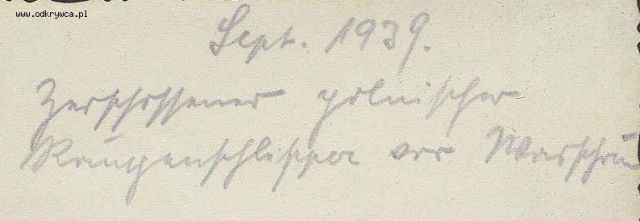 www.odkrywca.pl
Sept. 1939.
Zerschossener polnischer
Raupenschlepper vor Warschau